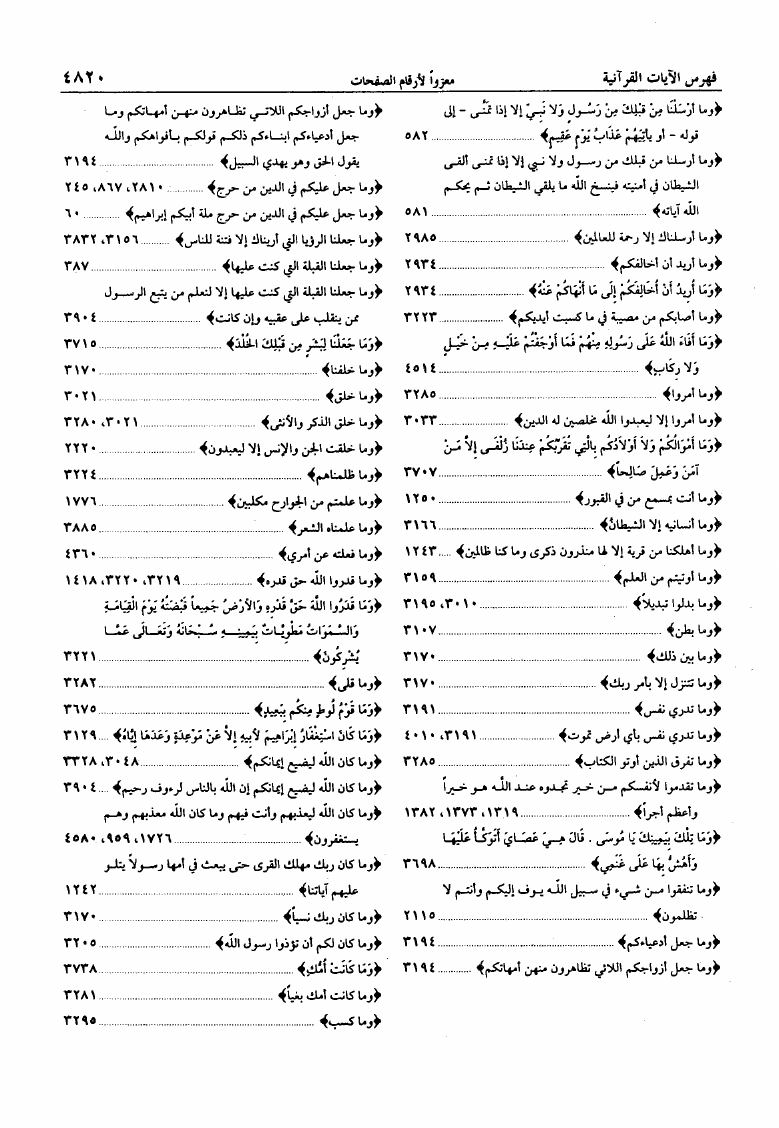 فهرس الآيات القرآنية معزواً لأرقام الصفحات ٤٨٢٠
﴿وما أَرْسَلْنَا مِنْ قَبْلِكَ مِنْ رَسُولٍ وَلا نَبِيٍّ إلا إذا تَمَنَّى - إلى
قوله - أو يأتِيَهُمْ عَذَابُ يَوْمٍ عَقِيمٍ﴾ ٥٨٢
﴿وما أرسلنا من قبلك من رسول ولا نبي إلا إذا تمنى ألقى
الشيطان في أمنيته فينسخ الله ما يلقي الشيطان ثم يحكم
الله آياته﴾ ٥٨١
﴿وما أرسلناك إلا رحمة للعالمين﴾ ٢٩٨٥
﴿وما أريد أن أخالفكم﴾ ٢٩٣٤
﴿وَمَا أُرِيدُ أَنْ أُخَالِفَكُمْ إِلَى مَا أَنْهَاكُمْ عَنْهُ﴾ ٢٩٣٤
﴿وما أصابكم من مصيبة في ما كسبت أيديكم﴾ ٣٢٢٣
﴿وَمَا أَفَاءَ اللَّهُ عَلَى رَسُولِهِ مِنْهُمْ فَمَا أَوْجَفْتُمْ عَلَيْهِ مِنْ خَيْلٍ
وَلا رِكَابٍ﴾ ٤٥١٤
﴿وما أمروا﴾ ٣٢٨٥
﴿وما أمروا إلا ليعبدوا الله مخلصين له الدين﴾ ٣٠٣٣
﴿وَمَا أَمْوَالُكُمْ وَلاَ أَوْلاَدُكُم بِالَّتِي تُقَرِّبُكُمْ عِندَنَا زُلْفَى إِلاَّ مَنْ
آمَنَ وَعَمِلَ صَالِحاً﴾ ٣٧٠٧
﴿وما أنت بمسمع من في القبور﴾ ١٢٥٠
﴿وما أنسانيه إلا الشيطانُ﴾ ٣١٦٦
﴿وما أهلكنا من قرية إلا لها منذرون ذكرى وما كنا ظالمين﴾ ١٢٤٣
﴿وما أوتيتم من العلم﴾ ٣١٥٩
﴿وما بدلوا تبديلاً﴾ ٣٠١٠، ٣١٩٥
﴿وما بطن﴾ ٣١٠٧
﴿وما بين ذلك﴾ ٣١٧٠
﴿وما تتنزل إلا بأمر ربك﴾ ٣١٧٠
﴿وما تدري نفس﴾ ٣١٩١
﴿وما تدري نفس بأي أرض تموت﴾ ٣١٩١، ٤٠١٠
﴿وما تفرق الذين أوتو الكتاب﴾ ٣٢٨٥
﴿وما تقدموا لأنفسكم من خير تجدوه عند الله هو خيراً
وأعظم أجراً﴾ ١٣١٩، ١٣٧٣، ١٣٨٢
﴿وَمَا تِلْكَ بِيَمِينِكَ يَا مُوسَى . قَالَ هِيَ عَصَايَ أَتَوَكَّأُ عَلَيْهَا
وَأَهُشُّ بِهَا عَلَى غَنَمِي﴾ ٣٦٩٨
﴿وما تنفقوا من شيء في سبيل الله يوف إليكم وأنتم لا
تظلمون﴾ ٢١١٥
﴿وما جعل أدعياءكم﴾ ٣١٩٤
﴿وما جعل أزواجكم اللائي تظاهرون منهن أمهاتكم﴾ ٣١٩٤
﴿وما جعل أزواجكم اللائي تظاهرون منهن أمهاتكم وما
جعل أدعياءكم ابناءكم ذلكم قولكم بأفواهكم والله
يقول الحق وهو يهدي السبيل﴾ ٣١٩٤
﴿وما جعل عليكم في الدين من حرج﴾ ٢٨١٠، ٨٦٧، ٢٤٥
﴿وما جعل عليكم في الدين من حرج ملة أبيكم إبراهيم﴾ ٦٠
﴿وما جعلنا الرؤيا التي أريناك إلا فتنة للناس﴾ ٣١٥٦، ٣٨٣٢
﴿وما جعلنا القبلة التي كنت عليها﴾ ٣٨٧
﴿وما جعلنا القبلة التي كنت عليها إلا لنعلم من يتبع الرسول
ممن ينقلب على عقبيه وإن كانت﴾ ٣٩٠٤
﴿وَمَا جَعَلْنَا لِبَشَرٍ مِن قَبْلِكَ الخُلْدَ﴾ ٣٧١٥
﴿وما خلفنا﴾ ٣١٧٠
﴿وما خلق﴾ ٣٠٢١
﴿وما خلق الذكر والأنثى﴾ ٣٠٢١، ٣٢٨٠
﴿وما خلقت الجن والإنس إلا ليعبدون﴾ ٢٢٢٠
﴿وما ظلمناهم﴾ ٣٢٢٤
﴿وما علمتم من الجوارح مكلبين﴾ ١٧٧٦
﴿وما علمناه الشعر﴾ ٣٨٨٥
﴿وما فعلته عن أمري﴾ ٤٣٦٠
﴿وما قدروا الله حق قدره﴾ ٣٢١٩، ٣٢٢٠، ١٤١٨
﴿وَمَا قَدَرُوا اللَّهَ حَقَّ قَدْرِهِ وَالأَرْضُ جَمِيعاً قَبْضَتُهُ يَوْمَ الْقِيَامَةِ
وَالسَّمَوَاتُ مَطْوِيَّاتٌ بِيَمِينِهِ سُبْحَانَهُ وَتَعَالَى عَمَّا
يُشْرِكُونَ﴾ ٣٢٢١
﴿وما قلى﴾ ٣٢٨٢
﴿وَمَا قَوْمُ لُوطٍ مِنكُم بِبَعِيدٍ﴾ ٣٦٧٥
﴿وَمَا كَانَ اسْتِغْفَارُ إِبْرَاهِيمَ لأَبِيهِ إِلاَّ عَنْ مَوْعِدَةٍ وَعَدَهَا إِيَّاهُ﴾ ٣١٢٩
﴿وما كان الله ليضيع إيمانكم﴾ ٣٠٤٨، ٣٣٢٨
﴿وما كان الله ليضيع إيمانكم إن الله بالناس لرءوف رحيم﴾ ٣٩٠٤
﴿وما كان الله ليعذبهم وأنت فيهم وما كان الله معذبهم وهم
يستغفرون﴾ ١٧٢٦، ٩٥٩، ٤٥٨٠
﴿وما كان ربك مهلك القرى حتى يبعث في أمها رسولاً يتلو
عليهم آياتنا﴾ ١٢٤٢
﴿وما كان ربك نسياً﴾ ٣١٧٠
﴿وما كان لكم أن تؤذوا رسول الله﴾ ٣٢٠٥
﴿وَمَا كَانَتْ أُمُّكِ﴾ ٣٧٣٨
﴿وما كانت أمك بغياً﴾ ٣٢٨١
﴿وما كسب﴾ ٣٢٩٥